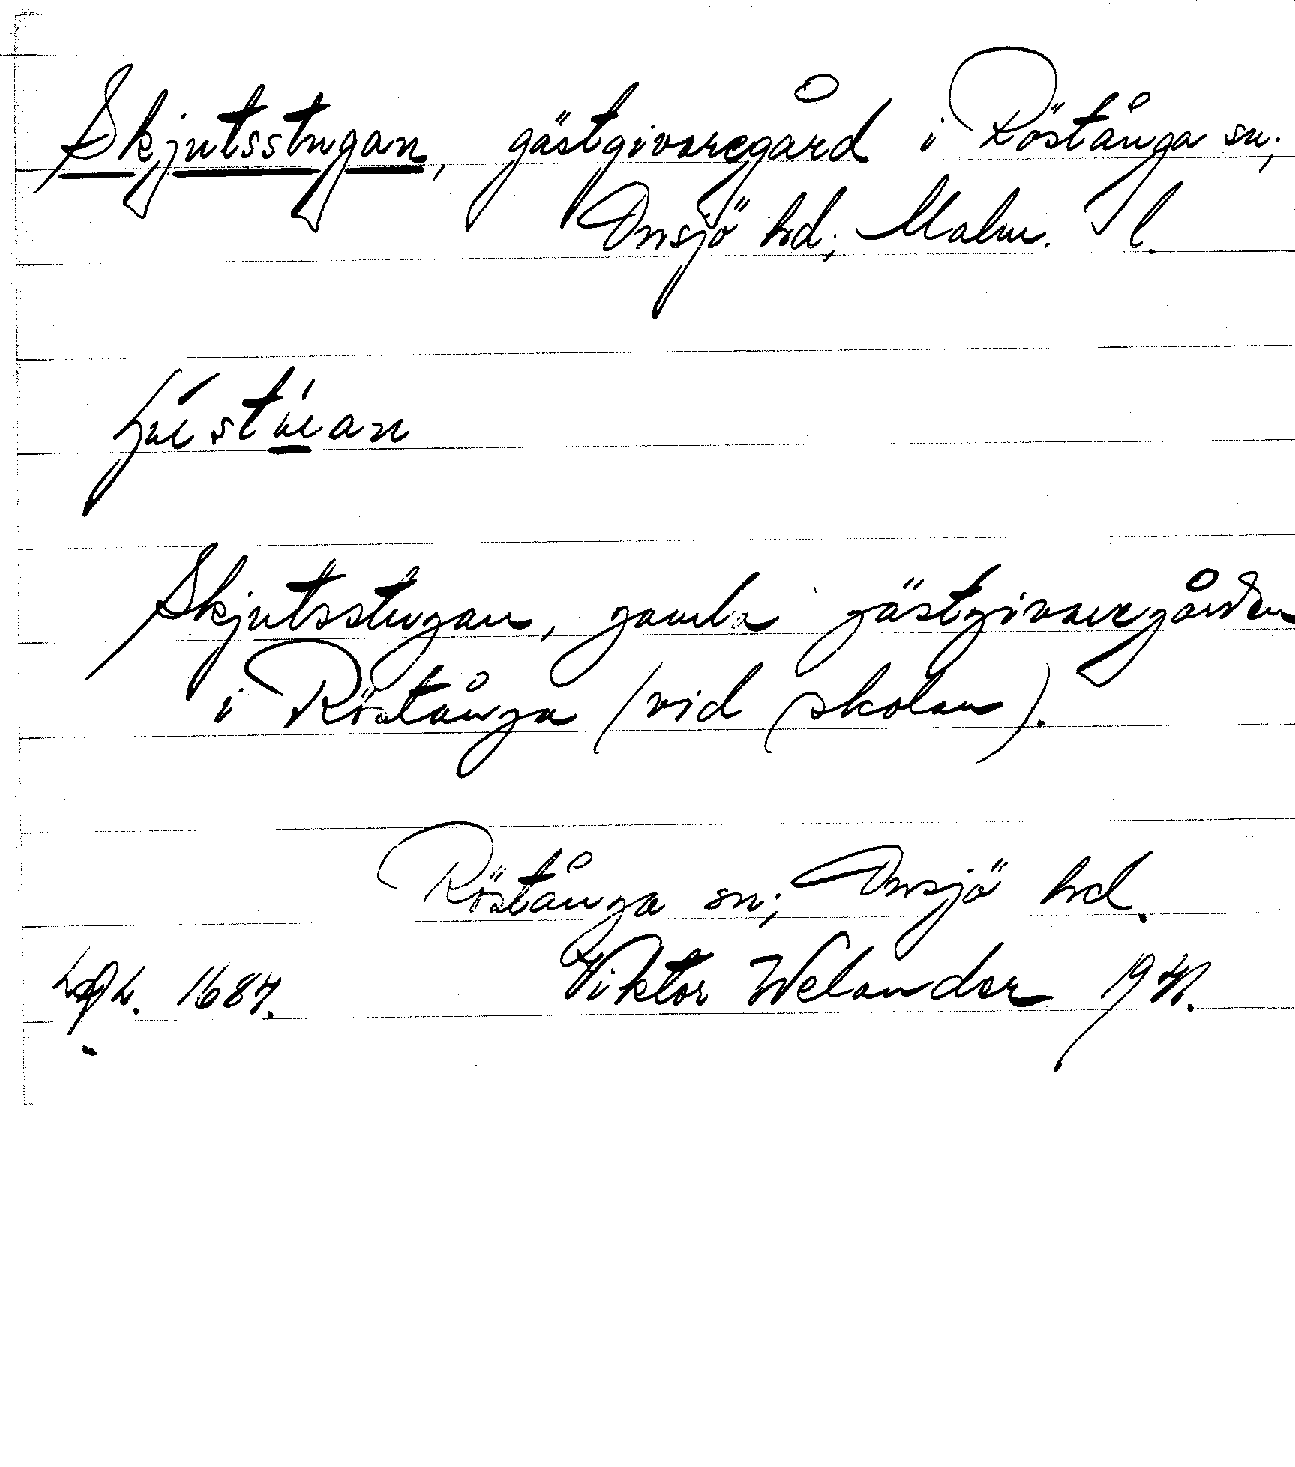 Skjutsstugan, gästgivaregård i Röstånga sn;
Onsjö hd; Malm. l.
Skjutsstugan, gamla gästgivaregården
i Röstånga (vid skolan).
Röstånga sn; Onsjö hd.
1687. Viktor Welander 1941.